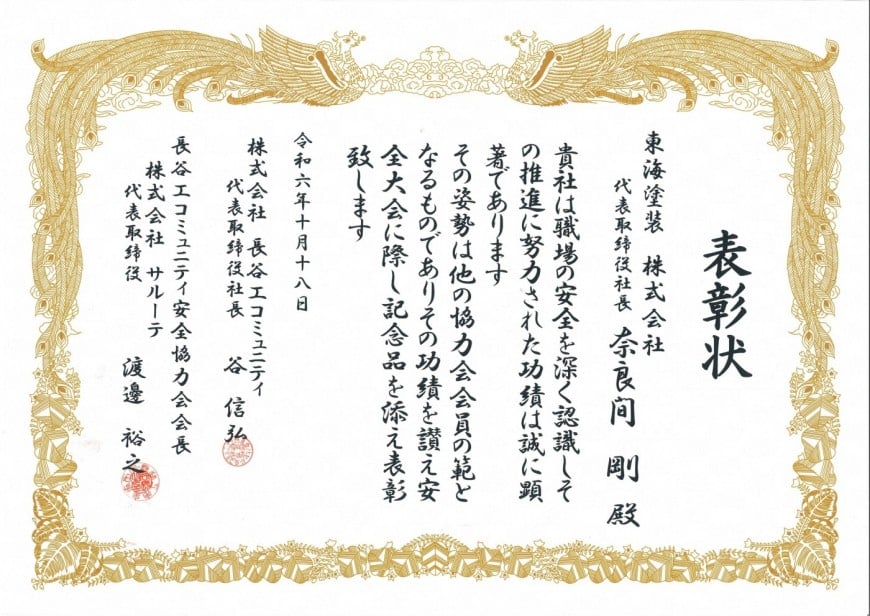 表彰状
東海塗装 株式会社
代表取締役社長 奈良間 剛 殿
貴社は職場の安全を深く認識しそ
の推進に努力された功績は誠に顕
著であります
その姿勢は他の協力会会員の範と
なるものでありその功績を讃え安
全大会に際し記念品を添え表彰
致します
令和六年十月十八日
株式会社 長谷工コミュニティ
代表取締役社長 谷 信弘
長谷工コミュニティ安全協力会会長
株式会社 サルーテ
代表取締役 渡邊 裕之